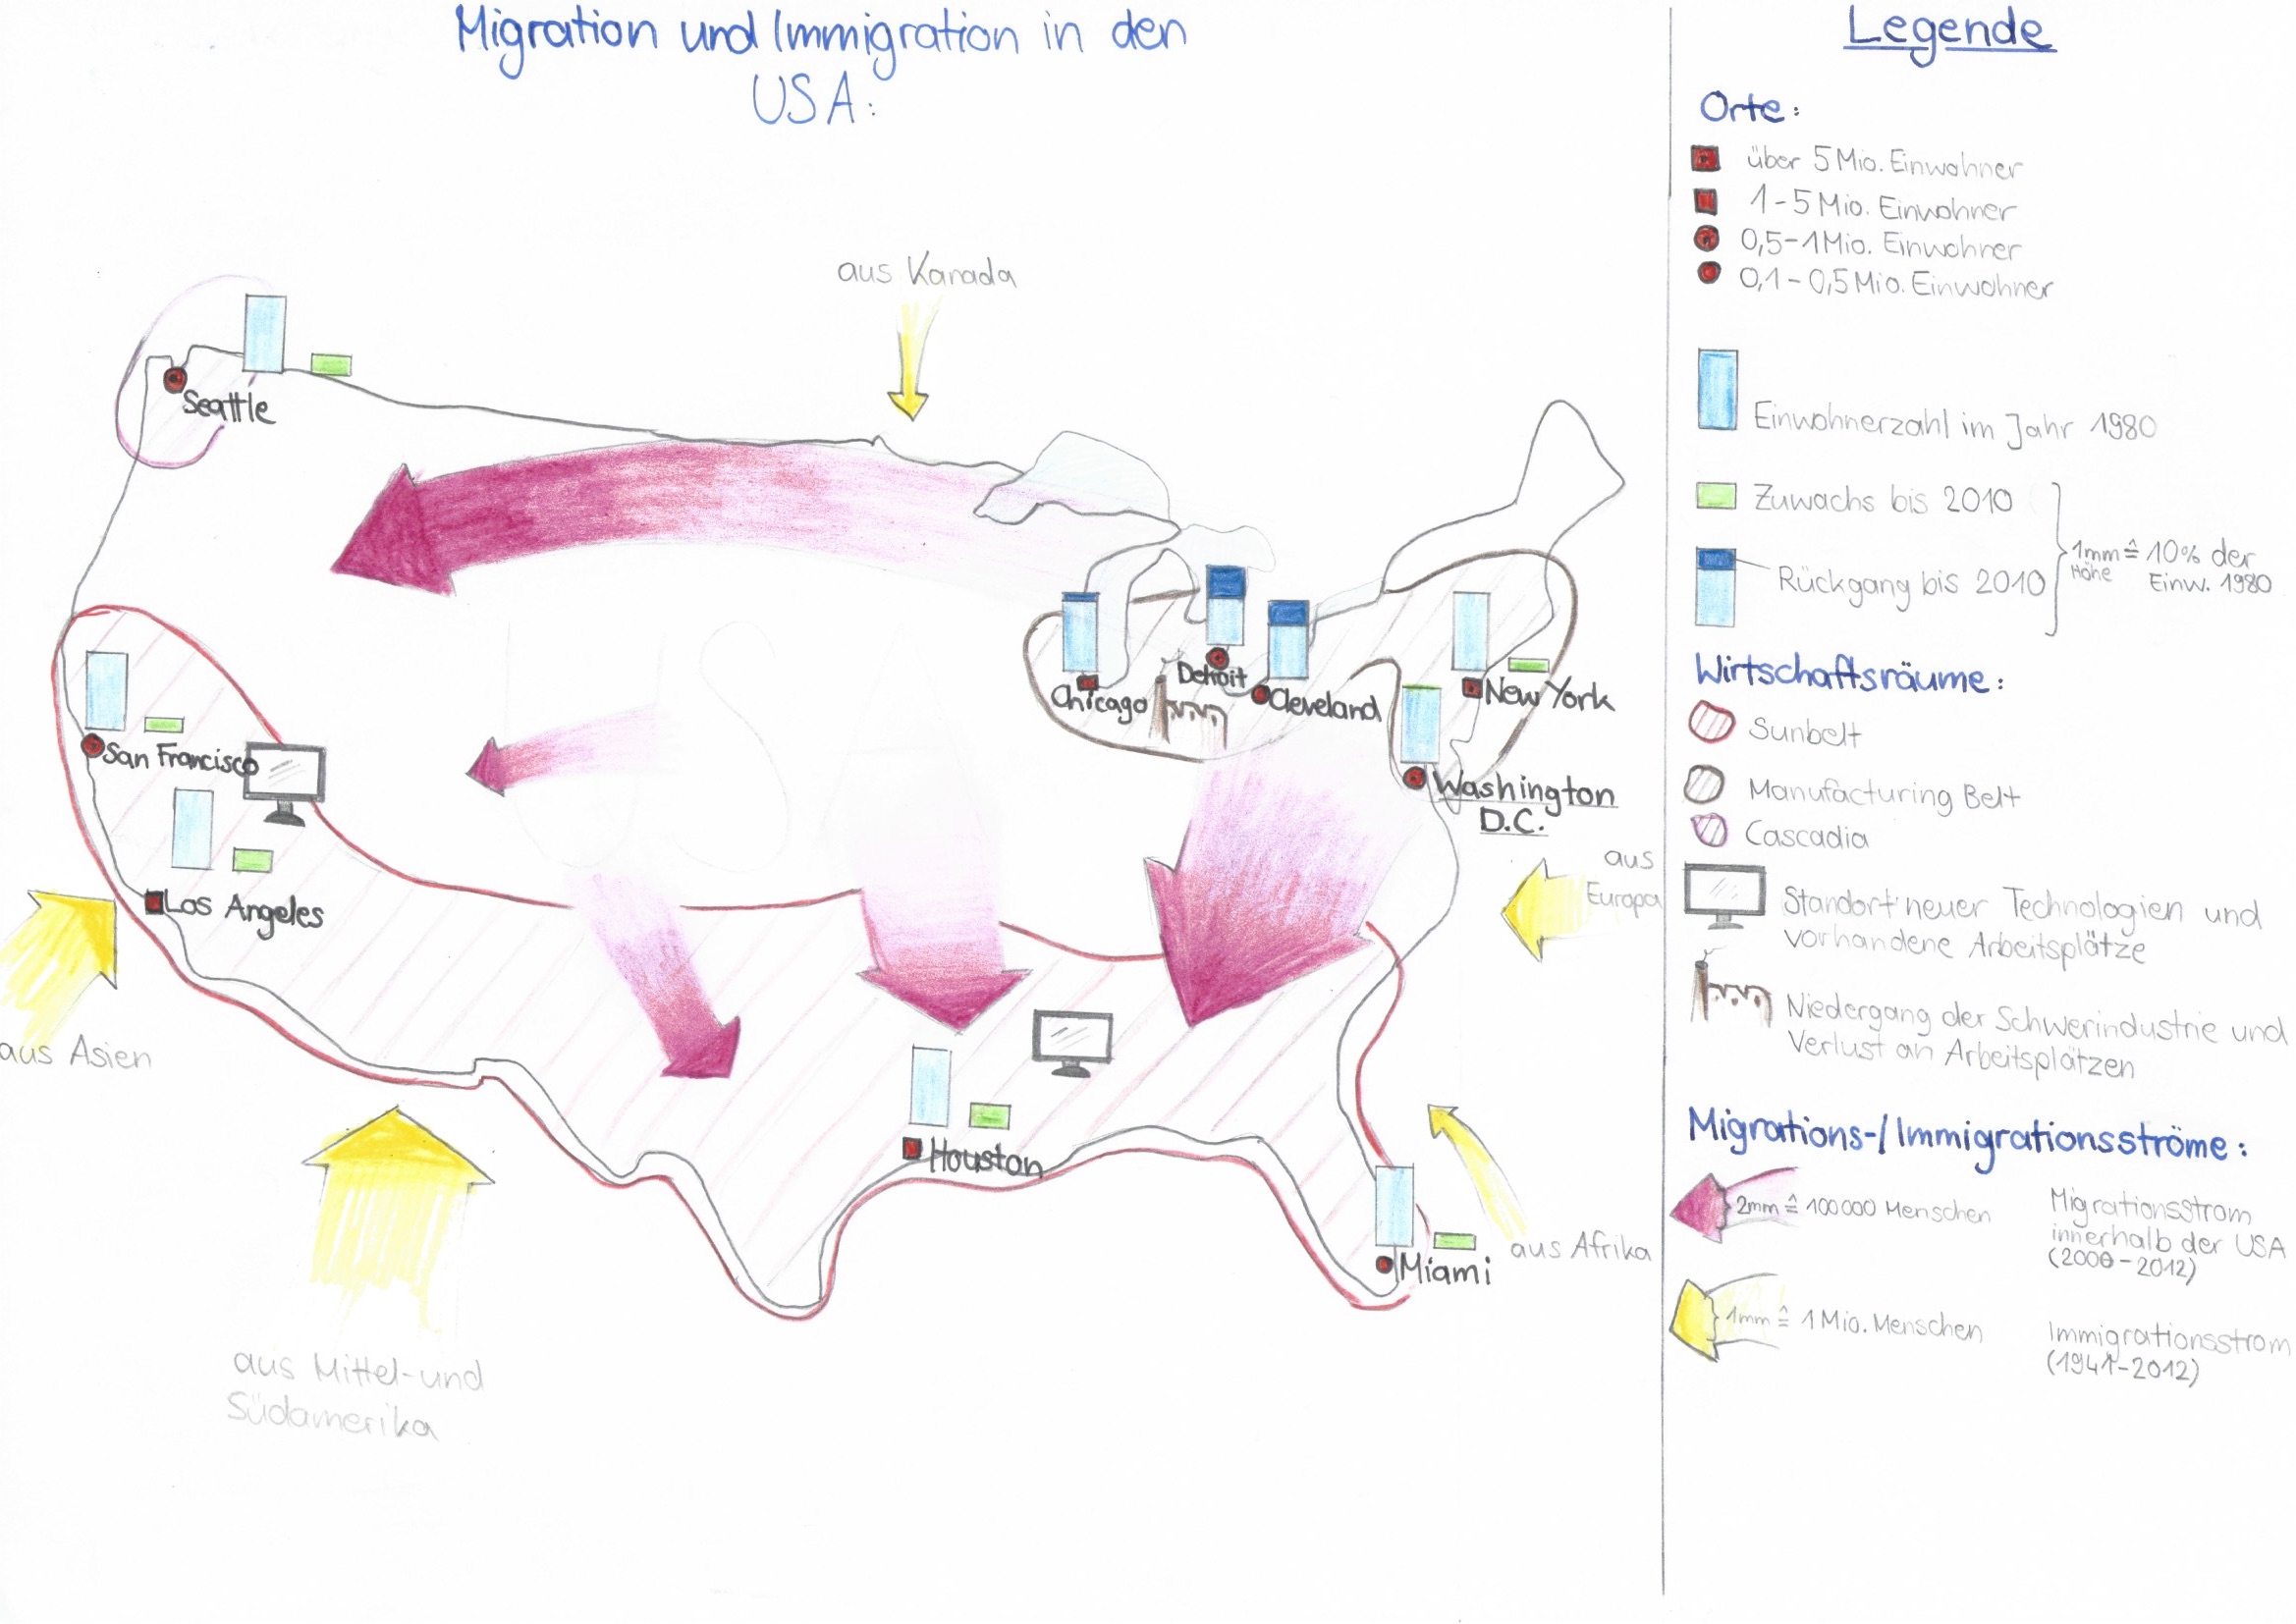 Migration und Immigration in den
USA:
aus Kanada
Seattle
USA
Chicago
Detroit
Cleveland
New York
San Francisco
Washington
D.C.
aus
Europa
Los Angeles
aus Asien
Houston
aus Afrika
Miami
aus Mittel-und
Südamerika
Legende
Orte:
über 5 Mio. Einwohner
1-5 Mio. Einwohner
0,5-1 Mio. Einwohner
0,1-0,5 Mio. Einwohner
Einwohnerzahl im Jahr 1980
Zuwachs bis 2010
Rückgang bis 2010
1mm ≙ 10% der
Höhe Einw. 1980
Wirtschaftsräume:
Sunbelt
Manufacturing Belt
Cascadia
Standort neuer Technologien und
vorhandene Arbeitsplätze
Niedergang der Schwerindustrie und
Verlust an Arbeitsplätzen
Migrations-/Immigrationsströme:
2mm ≙ 100000 Menschen
Migrationsstrom
innerhalb der USA
(2000-2012)
1mm ≙ 1 Mio. Menschen
Immigrationsstrom
(1941-2012)